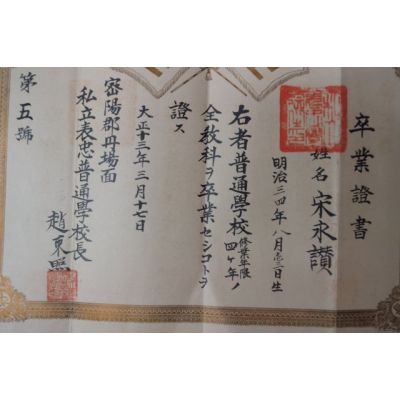 卒業證書
姓名 宋永讃
明治三四年八月三日生
右者普通學校修業年限四ヶ年ノ
全教科ヲ卒業セシコトヲ
證ス
大正十三年三月十七日
密陽郡丹場面
私立表忠普通學校長
趙東熙
第五號